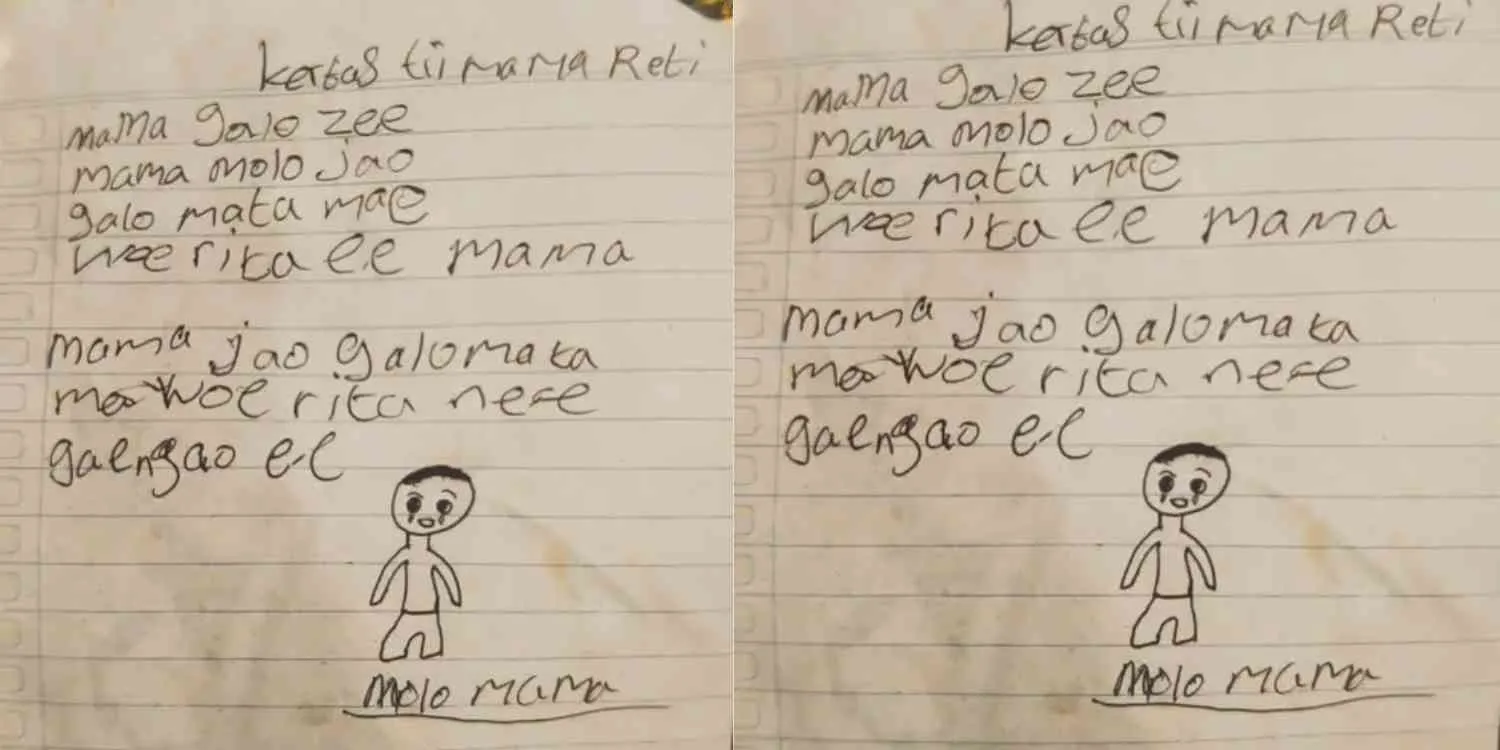 kertas tii mama Reti
mama galo zee
mama molo jao
galo mata mae
woe rita ee mama
mama jao galo mata
mae woe rita nee
gae ngao ee
molo mama
kertas tii mama Reti
mama galo zee
mama molo jao
galo mata mae
woe rita ee mama
mama jao galo mata
mae woe rita nee
gae ngao ee
molo mama